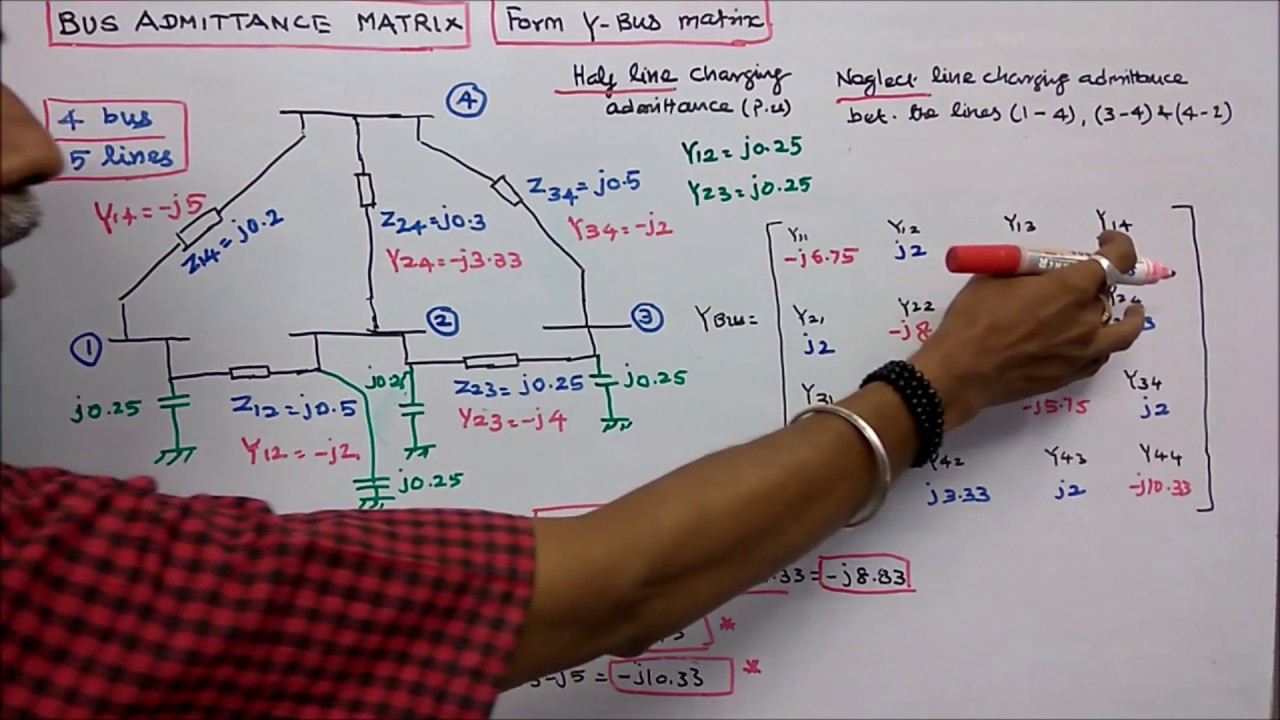 BUS ADMITTANCE MATRIX
Form Y-Bus matrix
4 bus
5 lines
Half line charging
admittance (P.u)
Neglect line charging admittance
bet. the lines (1-4), (3-4) & (4-2)
Y12 = j0.25
Y23 = j0.25
4
Y14 = -j5
Z14 = j0.2
Z24 = j0.3
Y24 = -j3.33
Z34 = j0.5
Y34 = -j2
1
2
3
j0.25
Z12 = j0.5
Y12 = -j2
j0.25
Z23 = j0.25
Y23 = -j4
j0.25
YBus =
Y11 Y12 Y13 Y14
-j6.75 j2
Y21 Y22 Y24
j2 -j8
Y31 Y34
-j5.75 j2
Y42 Y43 Y44
j3.33 j2 -j10.33
.33 = -j8.83
*
-j5 = -j10.33 *